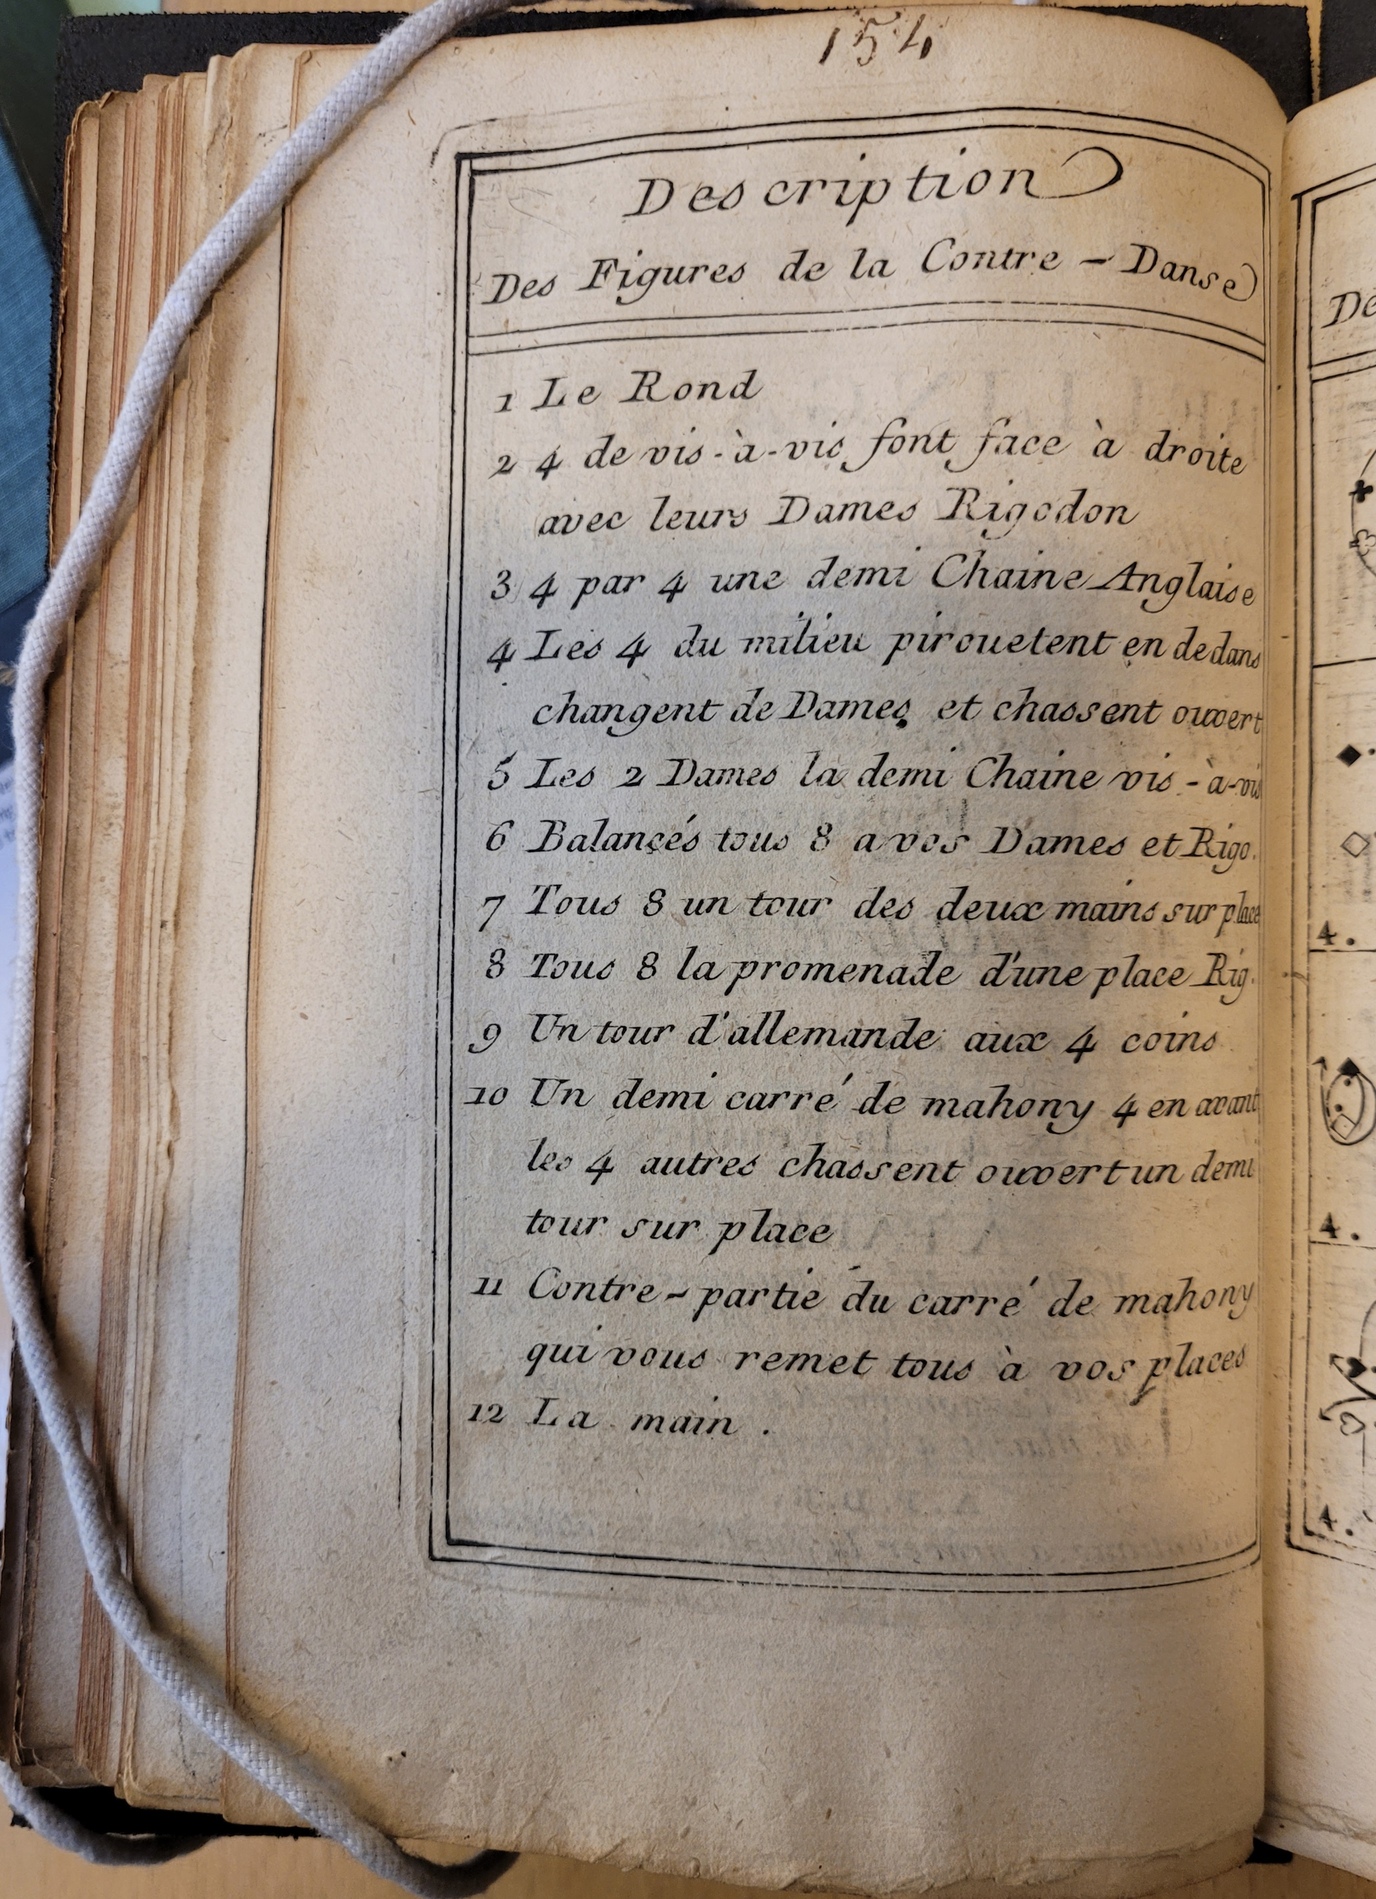 154
Description
Des Figures de la Contre - Danse
1 Le Rond
2 4 de vis-à-vis font face à droite
avec leurs Dames Rigodon
3 4 par 4 une demi Chaine Anglaise
4 Les 4 du milieu pirouetent en dedans
changent de Dames et chassent ouvert
5 Les 2 Dames la demi Chaine vis-à-vis
6 Balancés tous 8 a vos Dames et Rigo.
7 Tous 8 un tour des deux mains sur place
8 Tous 8 la promenade d'une place Rig.
9 Un tour d'allemande aux 4 coins
10 Un demi carré de mahony 4 en avant
les 4 autres chassent ouvert un demi
tour sur place
11 Contre-partie du carré de mahony
qui vous remet tous à vos places
12 La main.
De
4.
4.
4.